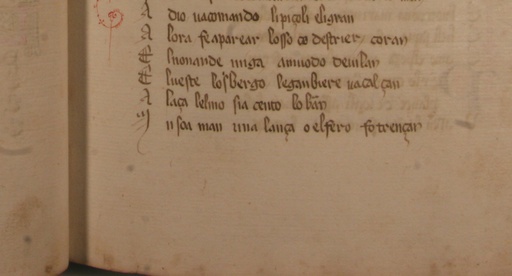 A dio uacomando lipiçoli eligran
A lora feaparear losso co destrier coran
E lnonande miga amuodo deuilan
E lueste losbergo leganbiere uacalçan
A laça lelmo sia cento lo bran
I nsoa man una lança o elfero fo trençan